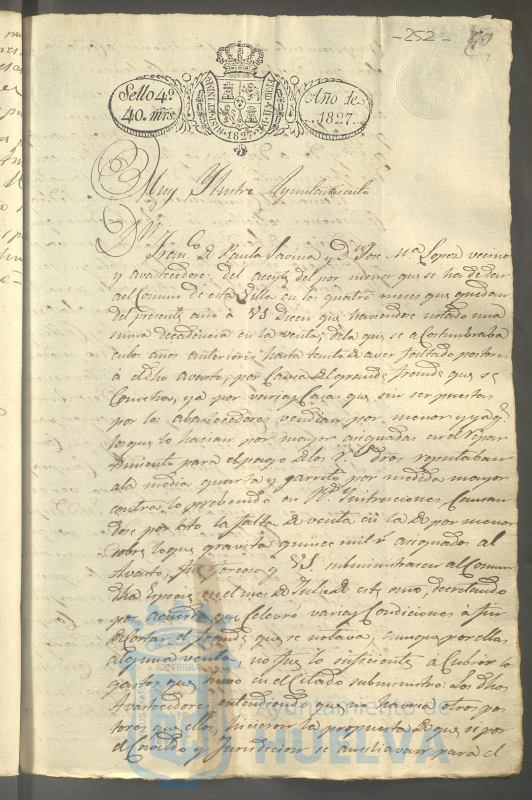 -252-
Sello 4º
40. mrs.
Año de
1827.
Muy Ylustre Ayuntamiento
Dn Franco de Paula Savina y Dn Jose Ma Lopez vecinos
y avastecedores del aceyte del por menor que se ha de dar
al Comun de esta Villa en los quatro meses que quedan
del presente año à VS Dicen que haviendose notado una
suma decadencia en la venta de la que se acostumbraba
en los años anteriores, hasta tanto de aver faltado postores
á el dho avasto, por causa del grande fraude que se
Cometia, ya por varias Casas que sin ser puestas
por los abastecedores vendian por menor y ya
los que lo hacian por mayor asignados en el repar
timiento para el pago de los Rs dros reputaban
a la media quarta y quarto por medida mayor
contra lo prebenido en Rs Instruciones Causan
dose por esto la falta de venta en la de por menor
sobre la que gravita quince mil rs asignados al
Avasto, fue forzoso q VS. subministrasen al Comun
dha especie en el mes de Julio de este año, decretando
por acuerdo que Celevró varias Condiciones a fin
de Cortar el fraude que se notava, aunque por ellas
alguna venta, no fue lo suficiente a Cubrir los
gastos que huvo en el Citado subministro: Los dhos
Avastecedores entendiendo que no havia otros pos
tores que ellos, hicieron la propuesta de que si por
el Cavildo y Jurisdicion se auxiliavan para el
Ayuntamiento de
HUELVA